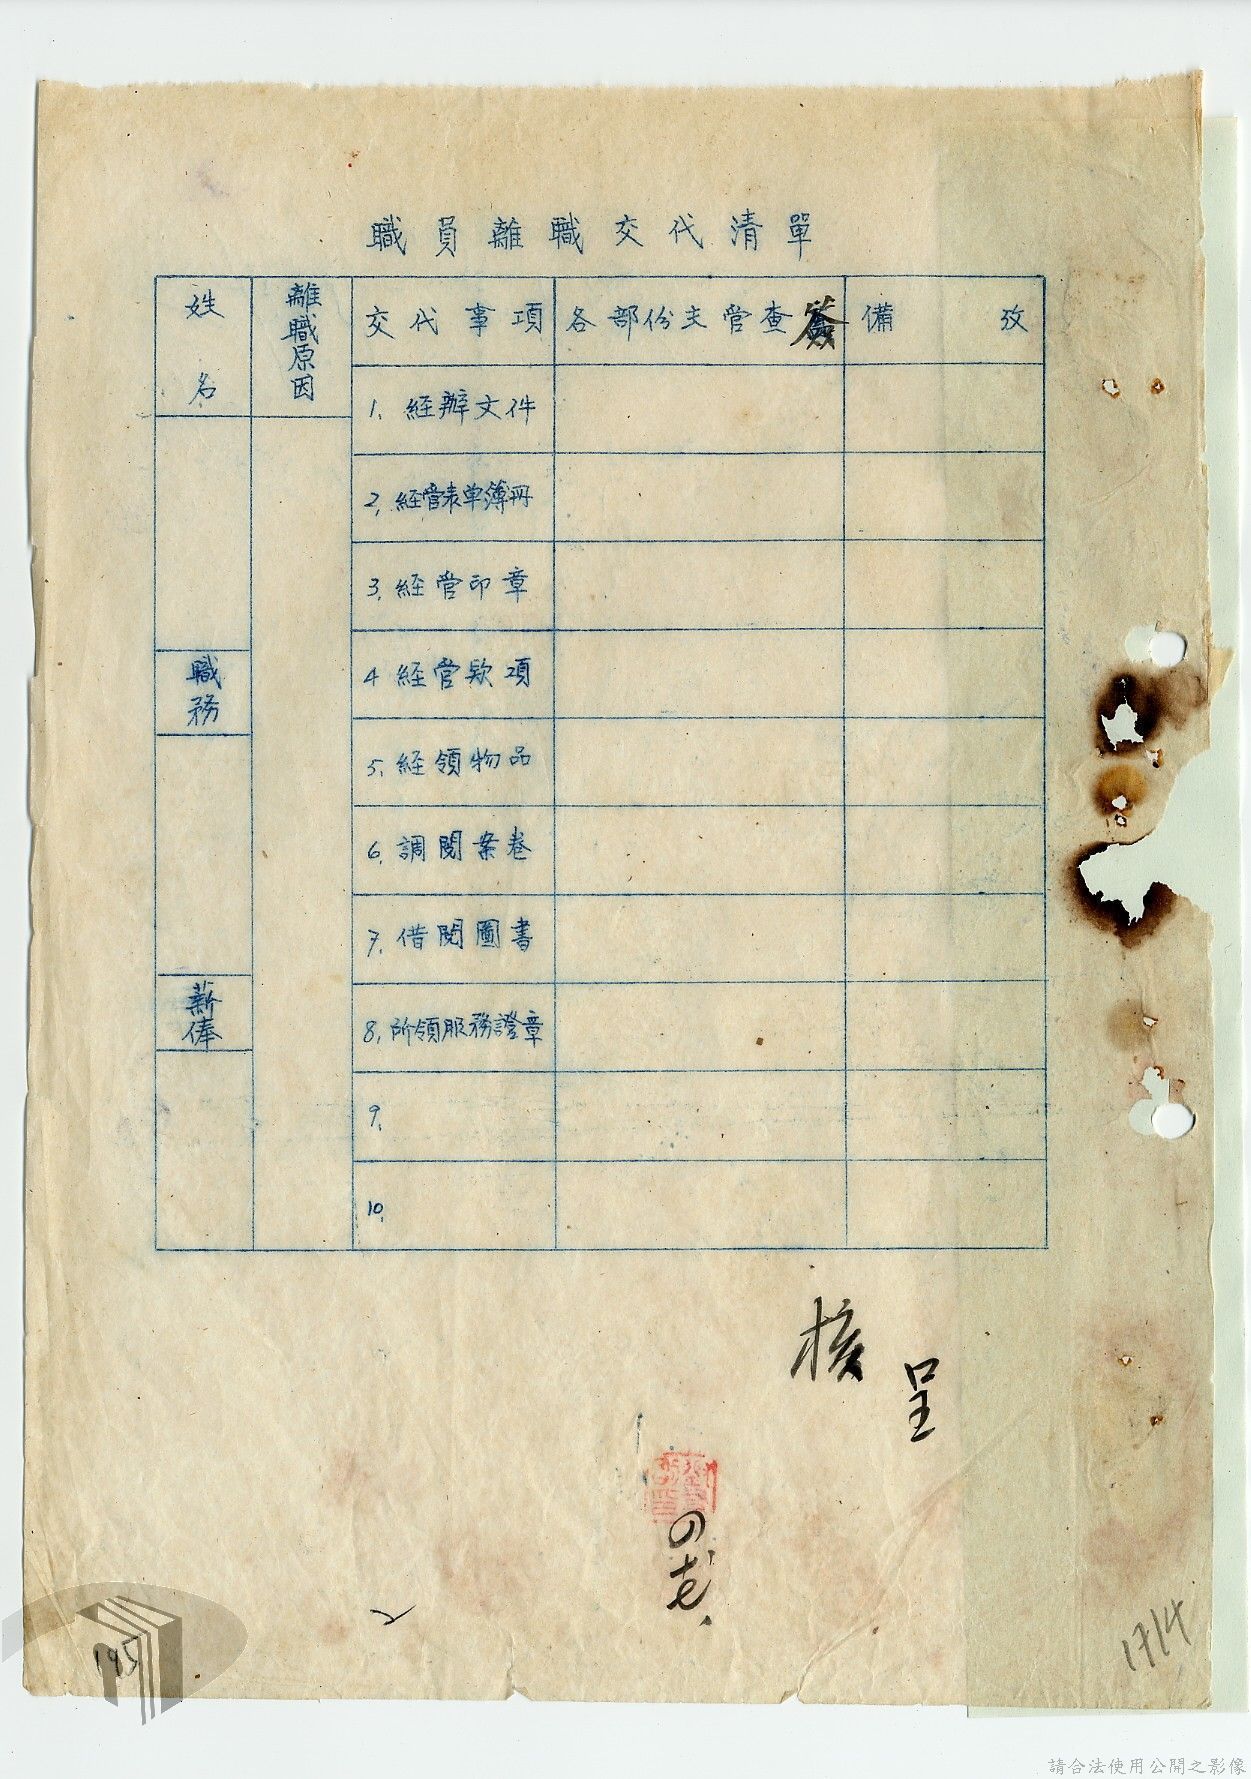 職員離職交代清單
姓名
離職原因
交代事項
各部份主管查簽
備攷
1. 經辦文件
2. 經管表單簿冊
3. 經管印章
4 經管欵項
5. 經領物品
6. 調閱案卷
7. 借閱圖書
8. 所領服務證章
9.
10.
職務
薪俸
呈
核
195
17/4
請合法使用公開之影像